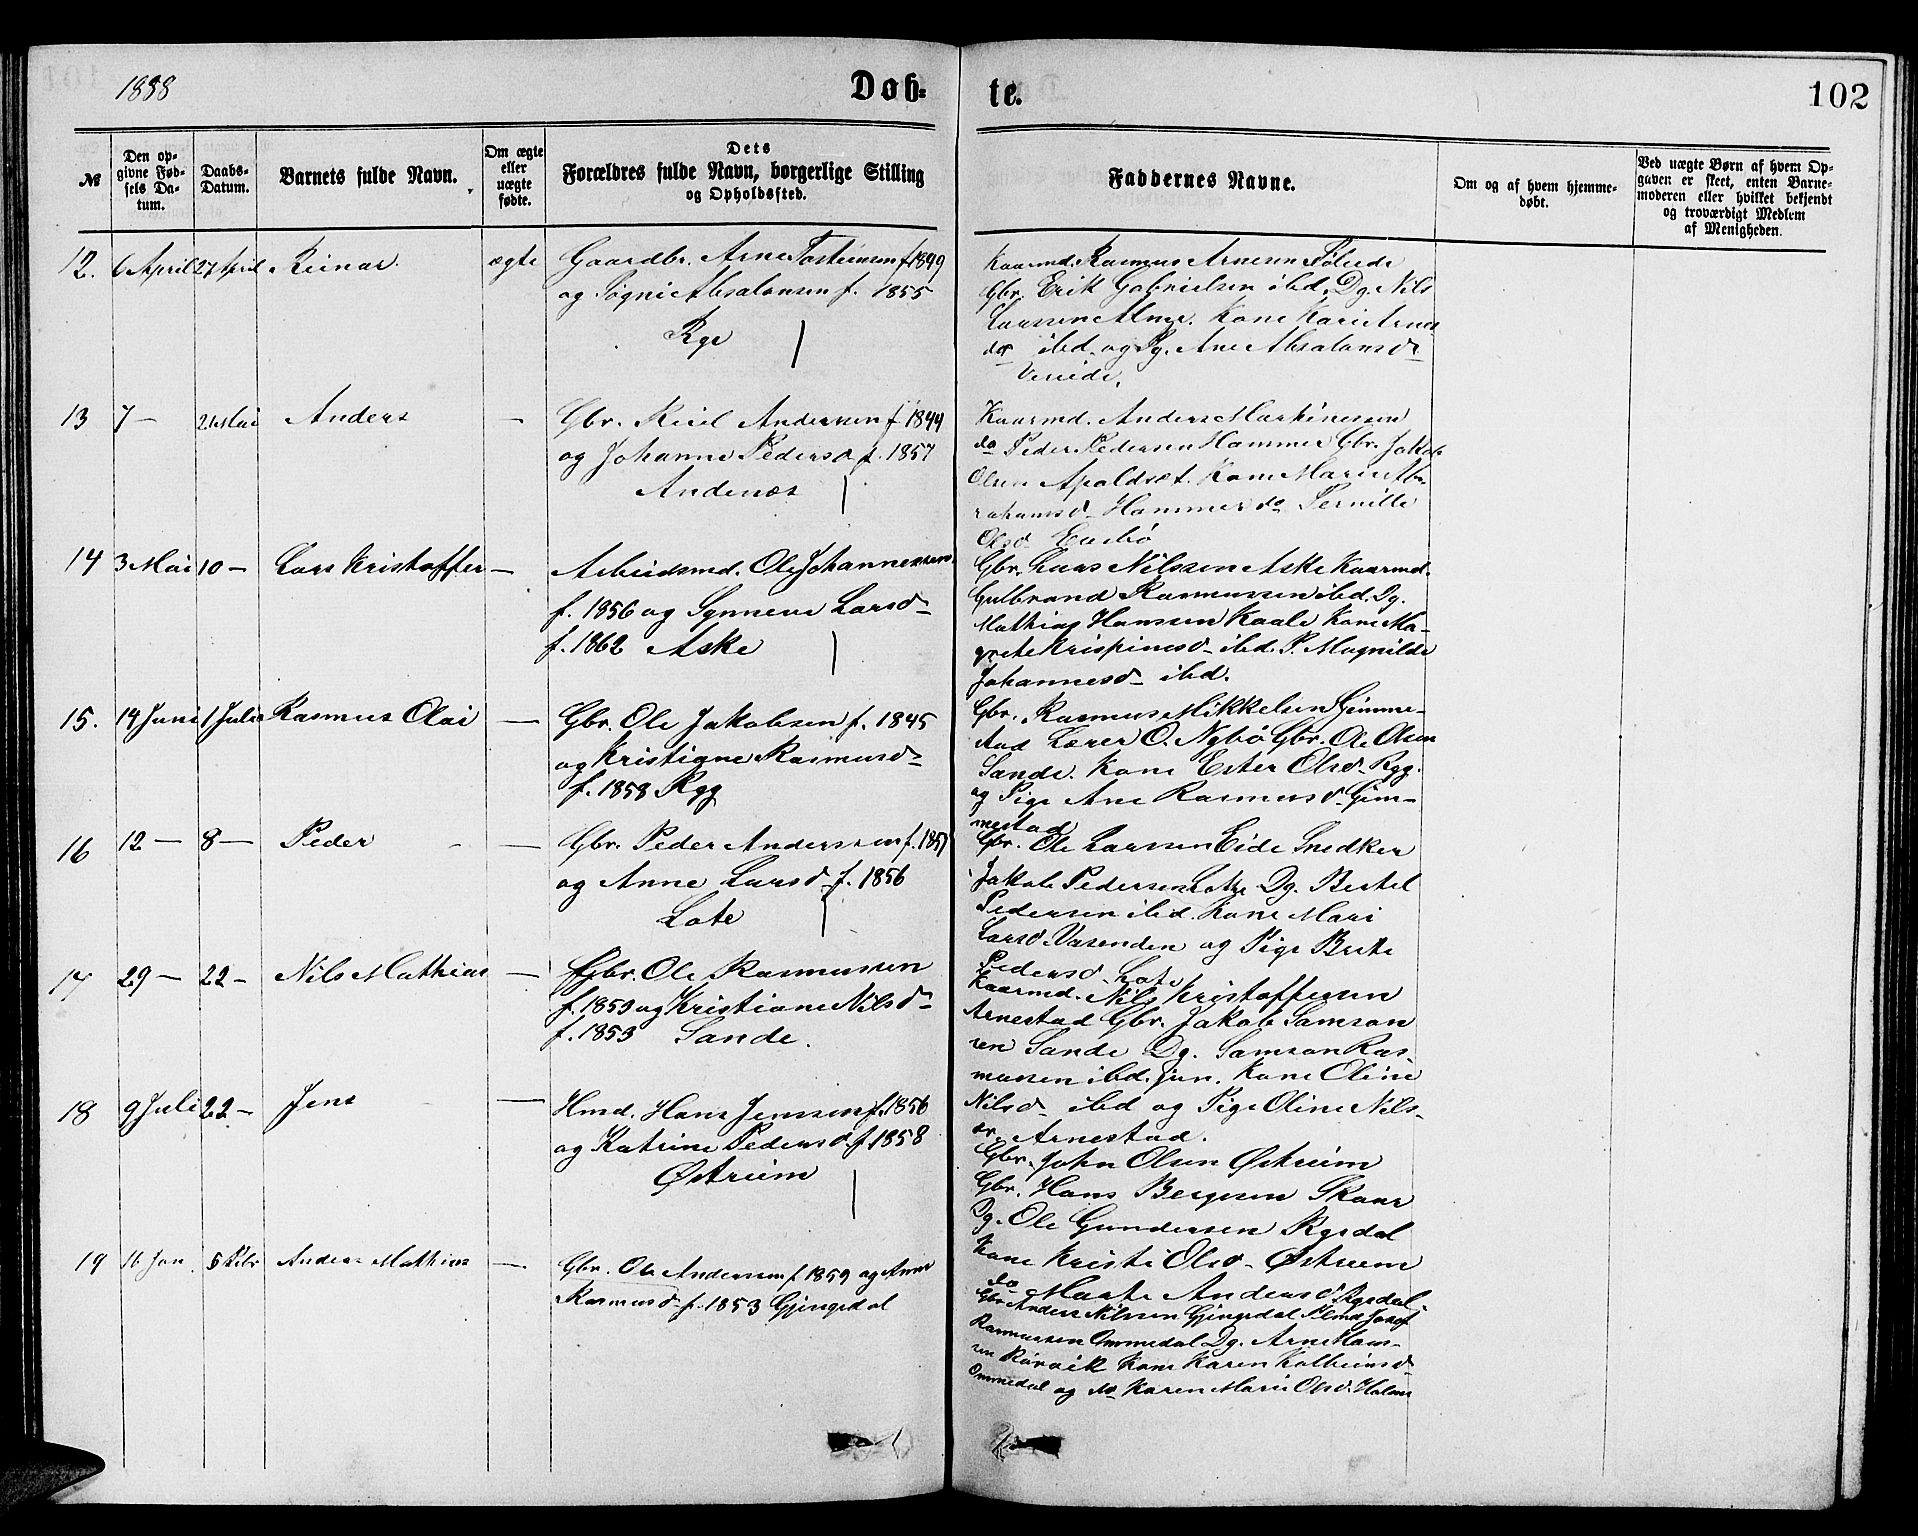 1888
Døb-
te.
102
№
Den op-
givne Fød-
sels Da-
tum.
Daabs-
Datum.
Barnets fulde Navn.
Om ægte
eller
uægte
fødte.
Dets
Forældres fulde Navn, borgerlige Stilling
og Opholdssted.
Faddernes Navne.
Om og af hvem hjemme-
døbt.
Ved uægte Børn af hvem Op-
gaven er skeet, enten Barne-
moderen eller hvilket bekjendt
og troværdigt Medlem
af Menigheden.
12. 6 April 27 April Reinar ægte
Gaardbr. Arne Torsteinsen f 1849
og Søgni Absalonsen f. 1855
Ryg
Kaarmd. Rasmus Arnesen
Gbr. Erik Gabrielsen ibd. Dg. Nils
Larssen Alme. Kone Kari Arnes
dr ibd. og Pg. Ane Absalonsdr
Vereide.
13 7 — 21 Mai Anders —
Gbr. Andersen f 1844
og Johanne Pedersd f. 1857
Andenæs
Kaarmd. Anders Martinessen
do Peder Pedersen Hammer Gbr. Jakob
Olsen Apaldsæt. Kone Marie Ab-
rahamsd- Hammer do Pernille
Olsd Eusbø
14 3 Mai 10 — Lars Kristoffer —
Arbeidsmd. Ole Johannessen
f. 1856 og Synneve Larsd-
f. 1862 Aske
Gbr. Lars Nilssen Aske Kaarmd.
Gulbrand Rasmussen ibd. Dg.
Mathias Hanssen Kaale Kone Ma-
grete Krispinusd- ibd. P. Magnilde
Johannesd- ibd.
15. 14 Juni 1 Julie Rasmus Olai —
Gbr. Ole Jakobsen f. 1845
og Kristiane Rasmusd-
f. 1858 Ryg
Gbr. Rasmus Mikkelsen Gimme-
stad Lærer O. Nybø Gbr. Ole Olsen
Sande. Kone Ester Olsd- Ryg.
og Pige Ane Rasmusd- Gim-
mestad
16 12 — 8 — Peder —
Gbr. Peder Anderssen f. 1851
og Anne Larsd- f. 1856
Lote
Gbr. Ole Larssen Eide Snedker
Jakob Pedersen Lote Dg. Bertel
Pedersen ibd. Kone Mari
Larsd- Vasenden og Pige Brite
Pedersd- Lote
17 29 — 22 — Nils Mathias —
Gbr. Ole Rasmussen
f. 1853 og Kristiane Nilsd-
f. 1853 Sande.
Kaarmd. Nils Kristoffersen
Arnestad Gbr. Jakob Samson
sen Sande Dg. Samson Ras-
mussen ibd. jun. Kone Oline
Nilsd- ibd og Pige Oline Nils-
dr. Arnestad.
18 9 Juli 22 — Jens —
Hmd. Hans Jenssen f. 1856
og Katrine Pedersd. f. 1858
Østreim
Gbr. John Olsen Østreim
Gbr. Hans Bergesen Skaar
Dg. Ole Gundersen Rygdal
Kone Kristi Olsd- Østreim
do Marte Andersd Rysdal
19 16 Jan 5 Febr Anders Mathias —
Gbr. Ole Anderssen f 1859 og Anne
Rasmusd- f. 1853 Gjengedal
Gbr Anders Nilssen Gjengedal Plmd Josef
Rasmussen Ommedal Dg. Arne Hans-
sen Rørvik Kone Karen Kolbeinsd-
Ommedal og do Karen Marie Olsd. Holme